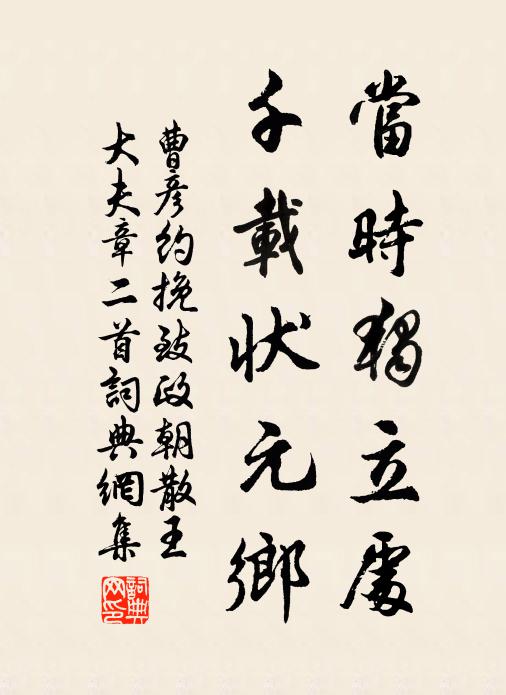 當時獨立處
千載狀元鄉
曹彦約挽致政朝散王
大夫章二首詞典網集
詞典
网印